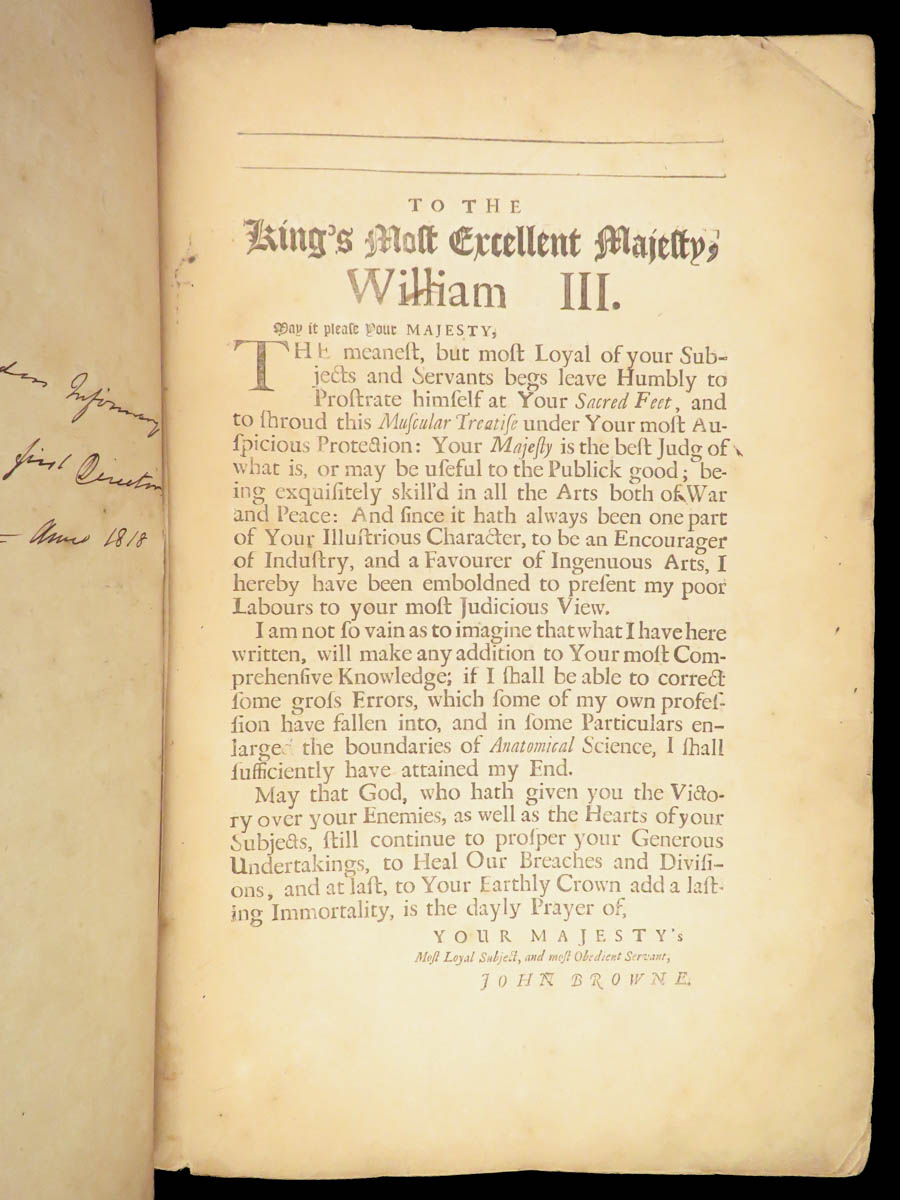 Infirmary
first Director
— Anno 1818
TO THE
King's Moſt Excellent Majeſty,
William III.
May it pleaſe Your MAJESTY,
THE meaneſt, but moſt Loyal of your Sub-
jects and Servants begs leave Humbly to
Proſtrate himſelf at Your Sacred Feet, and
to ſhroud this Muſcular Treatiſe under Your moſt Au-
ſpicious Protection: Your Majeſty is the beſt Judg of
what is, or may be uſeful to the Publick good; be-
ing exquiſitely skill'd in all the Arts both of War
and Peace: And ſince it hath always been one part
of Your Illuſtrious Character, to be an Encourager
of Induſtry, and a Favourer of Ingenuous Arts, I
hereby have been emboldned to preſent my poor
Labours to your moſt Judicious View.
I am not ſo vain as to imagine that what I have here
written, will make any addition to Your moſt Com-
prehenſive Knowledge; if I ſhall be able to correct
ſome groſs Errors, which ſome of my own profeſ-
ſion have fallen into, and in ſome Particulars en-
large the boundaries of Anatomical Science, I ſhall
ſufficiently have attained my End.
May that God, who hath given you the Victo-
ry over your Enemies, as well as the Hearts of your
Subjects, ſtill continue to proſper your Generous
Undertakings, to Heal Our Breaches and Diviſi-
ons, and at laſt, to Your Earthly Crown add a laſt-
ing Immortality, is the dayly Prayer of,
YOUR MAJESTY's
Moſt Loyal Subject, and moſt Obedient Servant,
JOHN BROWNE.